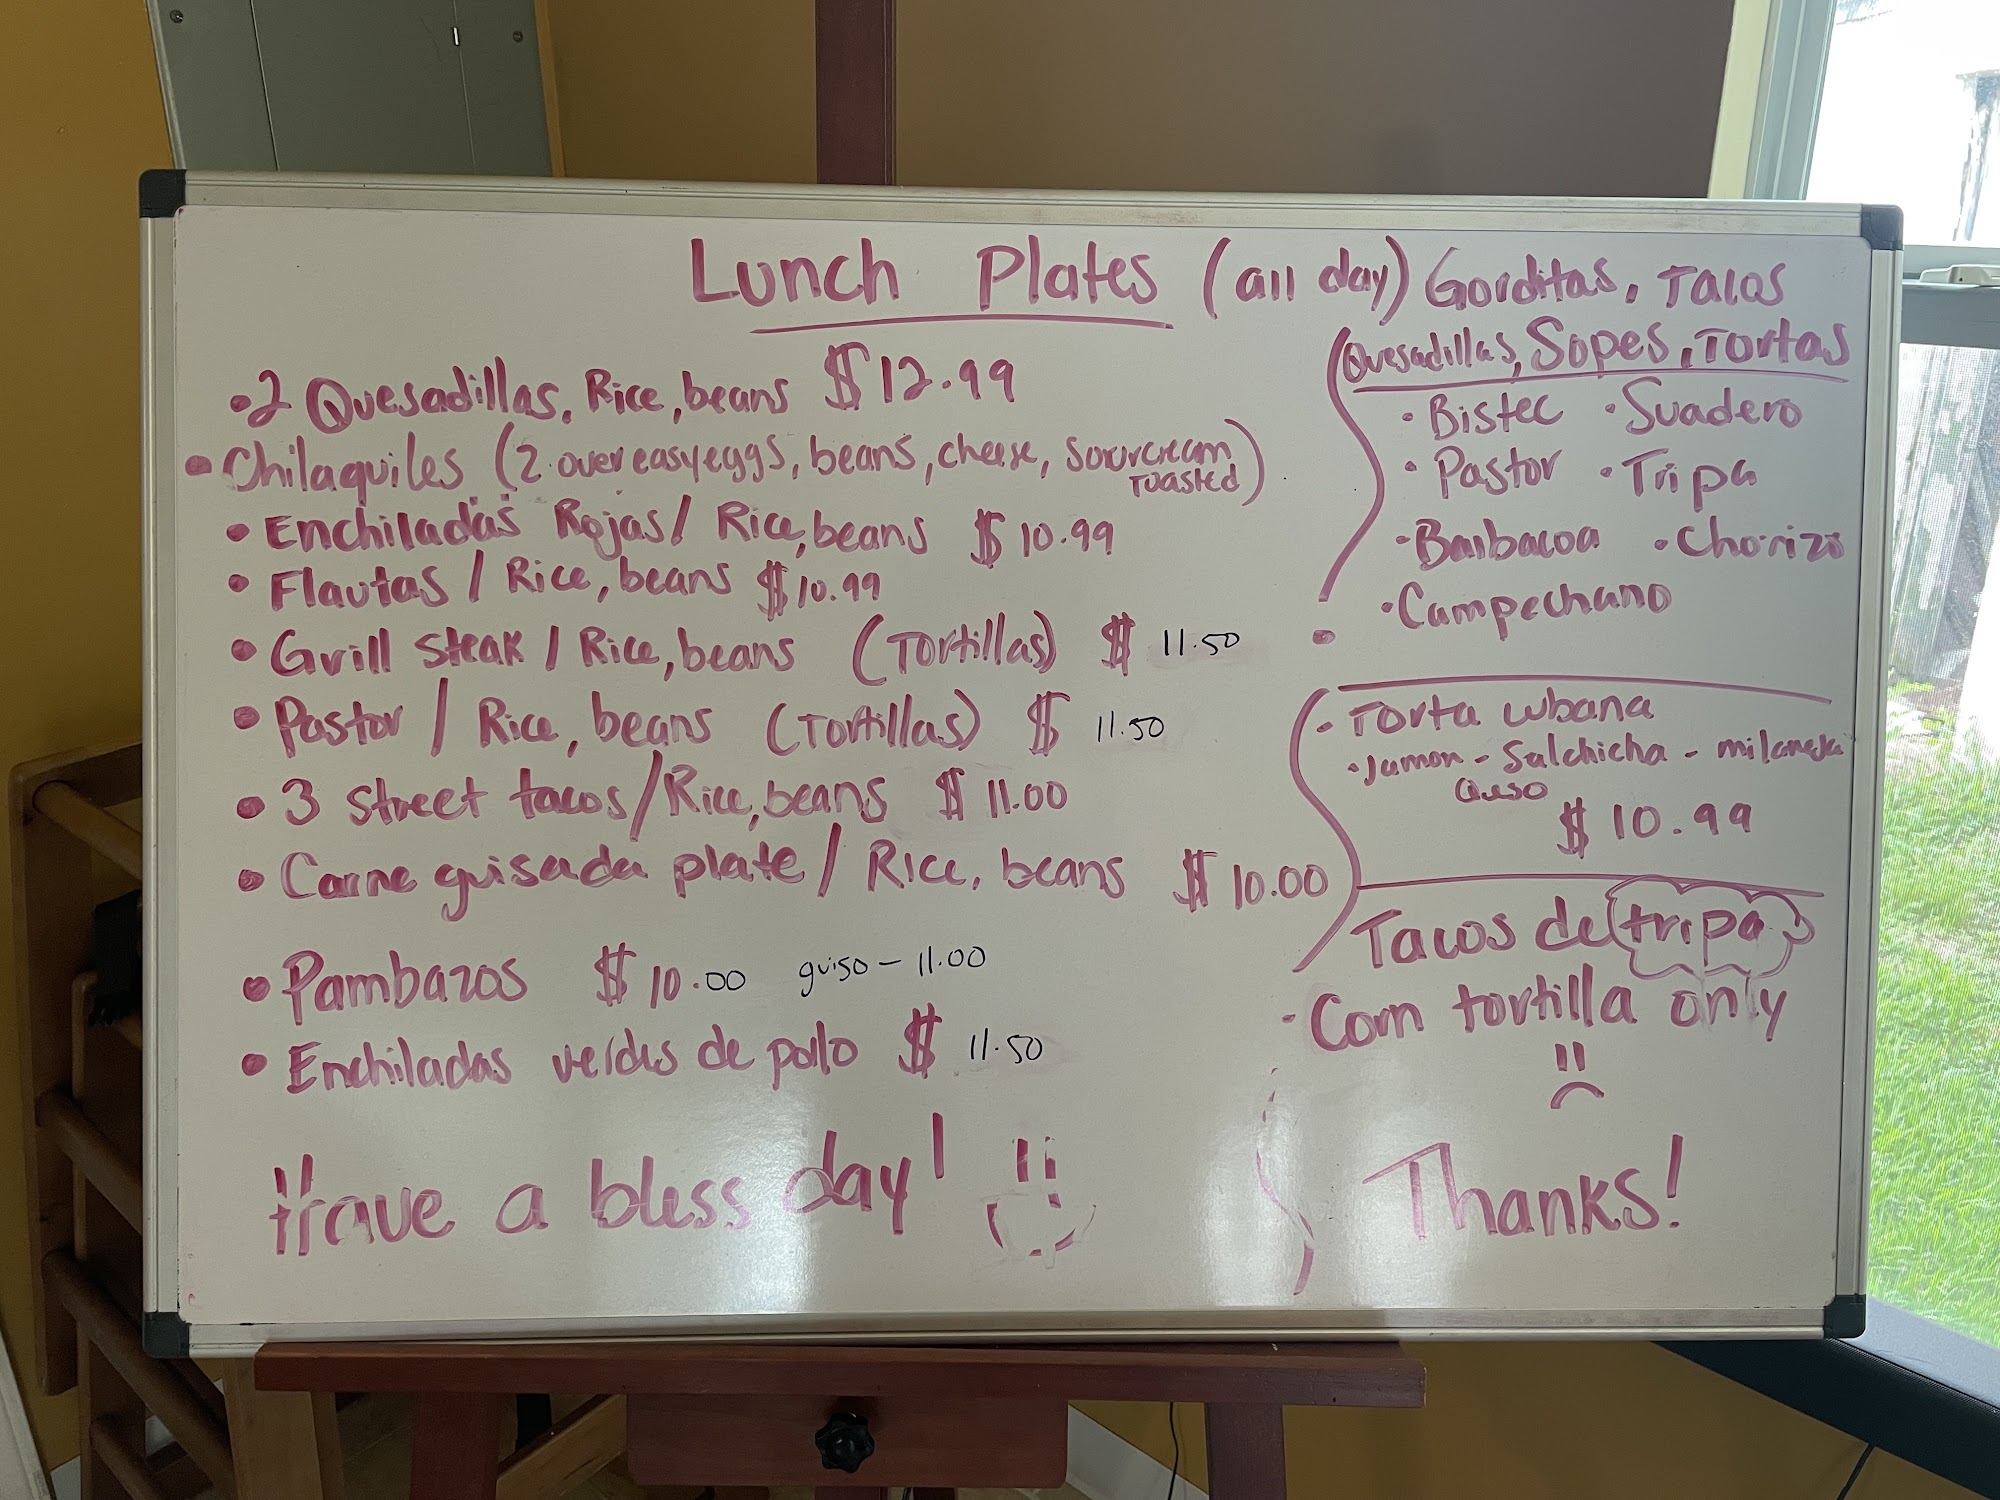 Lunch Plates (all day)
• 2 Quesadillas, Rice, beans $12.99
• Chilaquiles (2 over easy eggs, beans, cheese, sourcream
toasted)
• Enchiladas Rojas / Rice, beans $10.99
• Flautas / Rice, beans $10.99
• Grill steak / Rice, beans (Tortillas) $ 11.50
• Pastor / Rice, beans (Tortillas) $ 11.50
• 3 street tacos / Rice, beans $ 11.00
• Carne guisada plate / Rice, beans $ 10.00
• Pambazos $ 10.00 guiso - 11.00
• Enchiladas verdes de pollo $ 11.50
Have a bless day!
Gorditas, Tacos
Quesadillas, Sopes, Tortas
• Bistec • Suadero
• Pastor • Tripa
• Barbacoa • Chorizo
• Campechano
• Torta cubana
• Jamon - Salchicha - milanesa
Queso
$ 10.99
Tacos de tripa
• Corn tortilla only
Thanks!